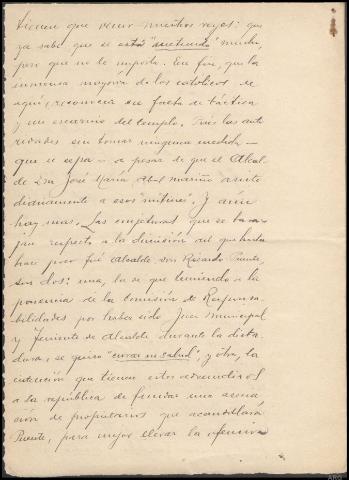 tienen que venir muchos reyes: que
ya sabe que se está "metiendo" mucho,
pero que no le importa. En fin, que la
inmensa mayoría de los católicos de
aquí, reconocen su falta de táctica
y un escarnio del templo. Pués las auto
ridades sin tomar ninguna medida —
que se sepa — a pesar de que el Alcal-
de Don José María Abal mariño asiste
diariamente a esos "mitines". Y aún
hay mas. Las conjeturas que se bara-
jan respecto a la dimisión del que hasta
hace poco fué Alcalde, don Ricardo Puente,
son dos: una, la de que temiendo a la
ponencia de la Comisión de Responsa-
bilidades por haber sido Juez Municipal
y Teniente de Alcalde durante la dicta-
dura, se quiso "curar en salud"; y otra, la
intención que tienen estos
a la república de fundar una asocia-
ción de propietarios que acaudillará
Puente, para mejor llevar la ofensiva